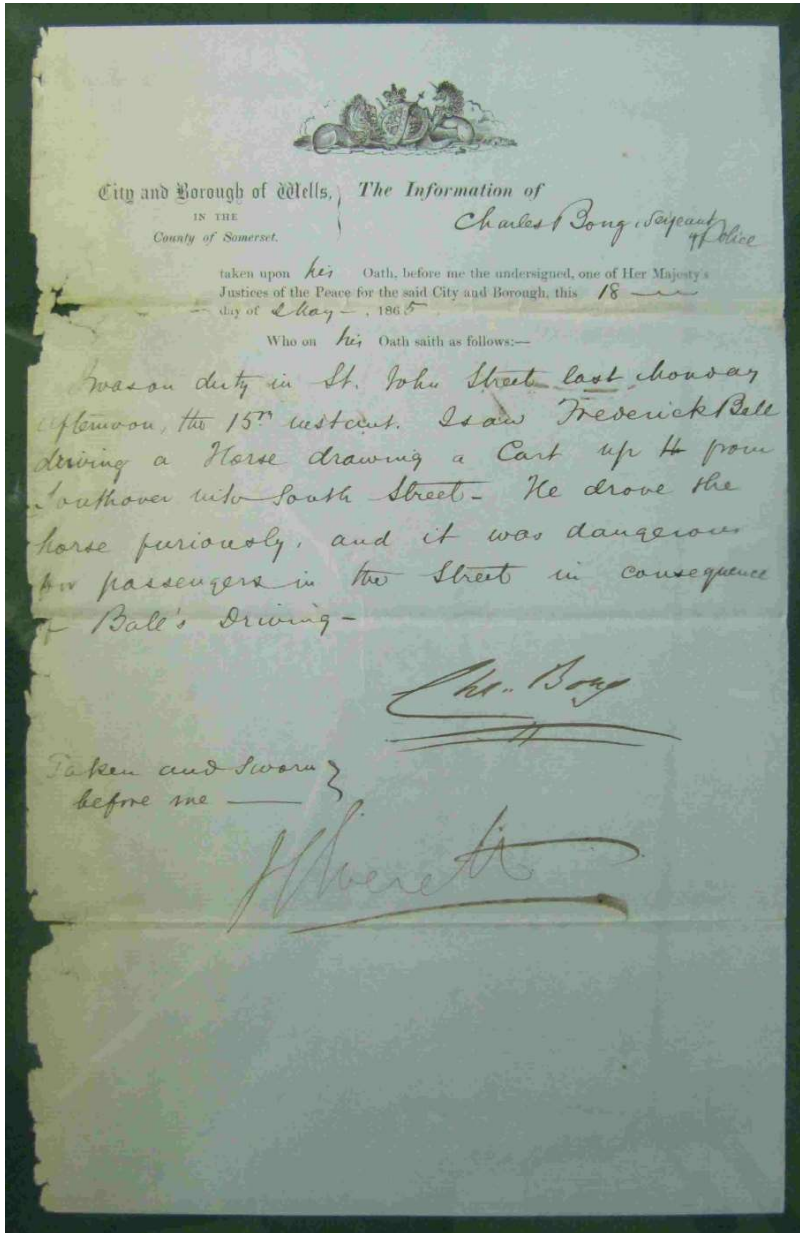 City and Borough of Wells,
IN THE
County of Somerset.
The Information of
Charles Bong, Serjeant
of Police
taken upon his Oath, before me the undersigned, one of Her Majesty's
Justices of the Peace for the said City and Borough, this 18
day of May - , 1865
Who on his Oath saith as follows:—
I was on duty in St. John Street last Monday
afternoon, the 15th instant. I saw Frederick Ball
driving a Horse drawing a Cart up from
Southover into South Street - He drove the
horse furiously, and it was dangerous
for passengers in the Street in consequence
of Ball's Driving -
Chs. Bong
Taken and Sworn
before me
Everett